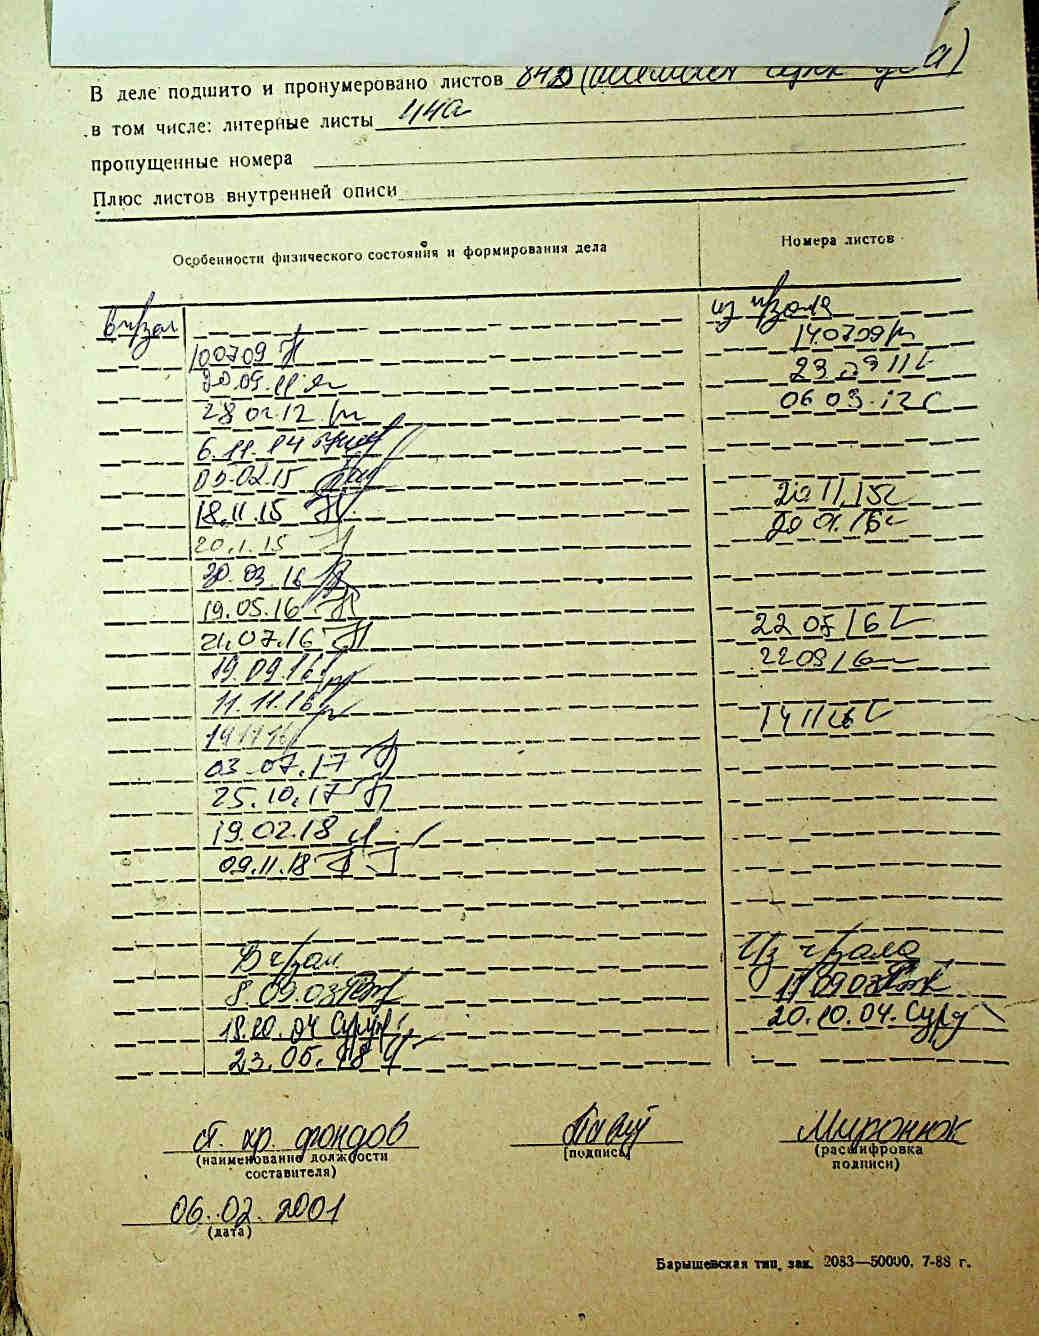 В деле подшито и пронумеровано листов 842
в том числе: литерные листы 44а
пропущенные номера
Плюс листов внутренней описи
Особенности физического состояния и формирования дела
Номера листов
в ч/зал
из ч/зала
10 07 09 14.07.09
20.09.11 23 09 11
28 02 12 06 03.12
6.11.14
09.02.15
18.11.15 20 11.15
20.1.15 20 01.16
30.03.16
19.05.16
21.07.16 22 07 16
19.09.16 22 09 16
11.11.16
19 11 16 14 11 16
03.07.17
25.10.17
19.02.18
09.11.18
В ч/зал Из ч/зала
8.09.03 11 09 03
18.10.04 20.10.04.
23.05.18
ст. хр. фондов Миронюк
(наименование должности
составителя)
(подпись)
(расшифровка
подписи)
06.02.2001
(дата)
Барышевская тип. зак. 2083—50000. 7-88 г.